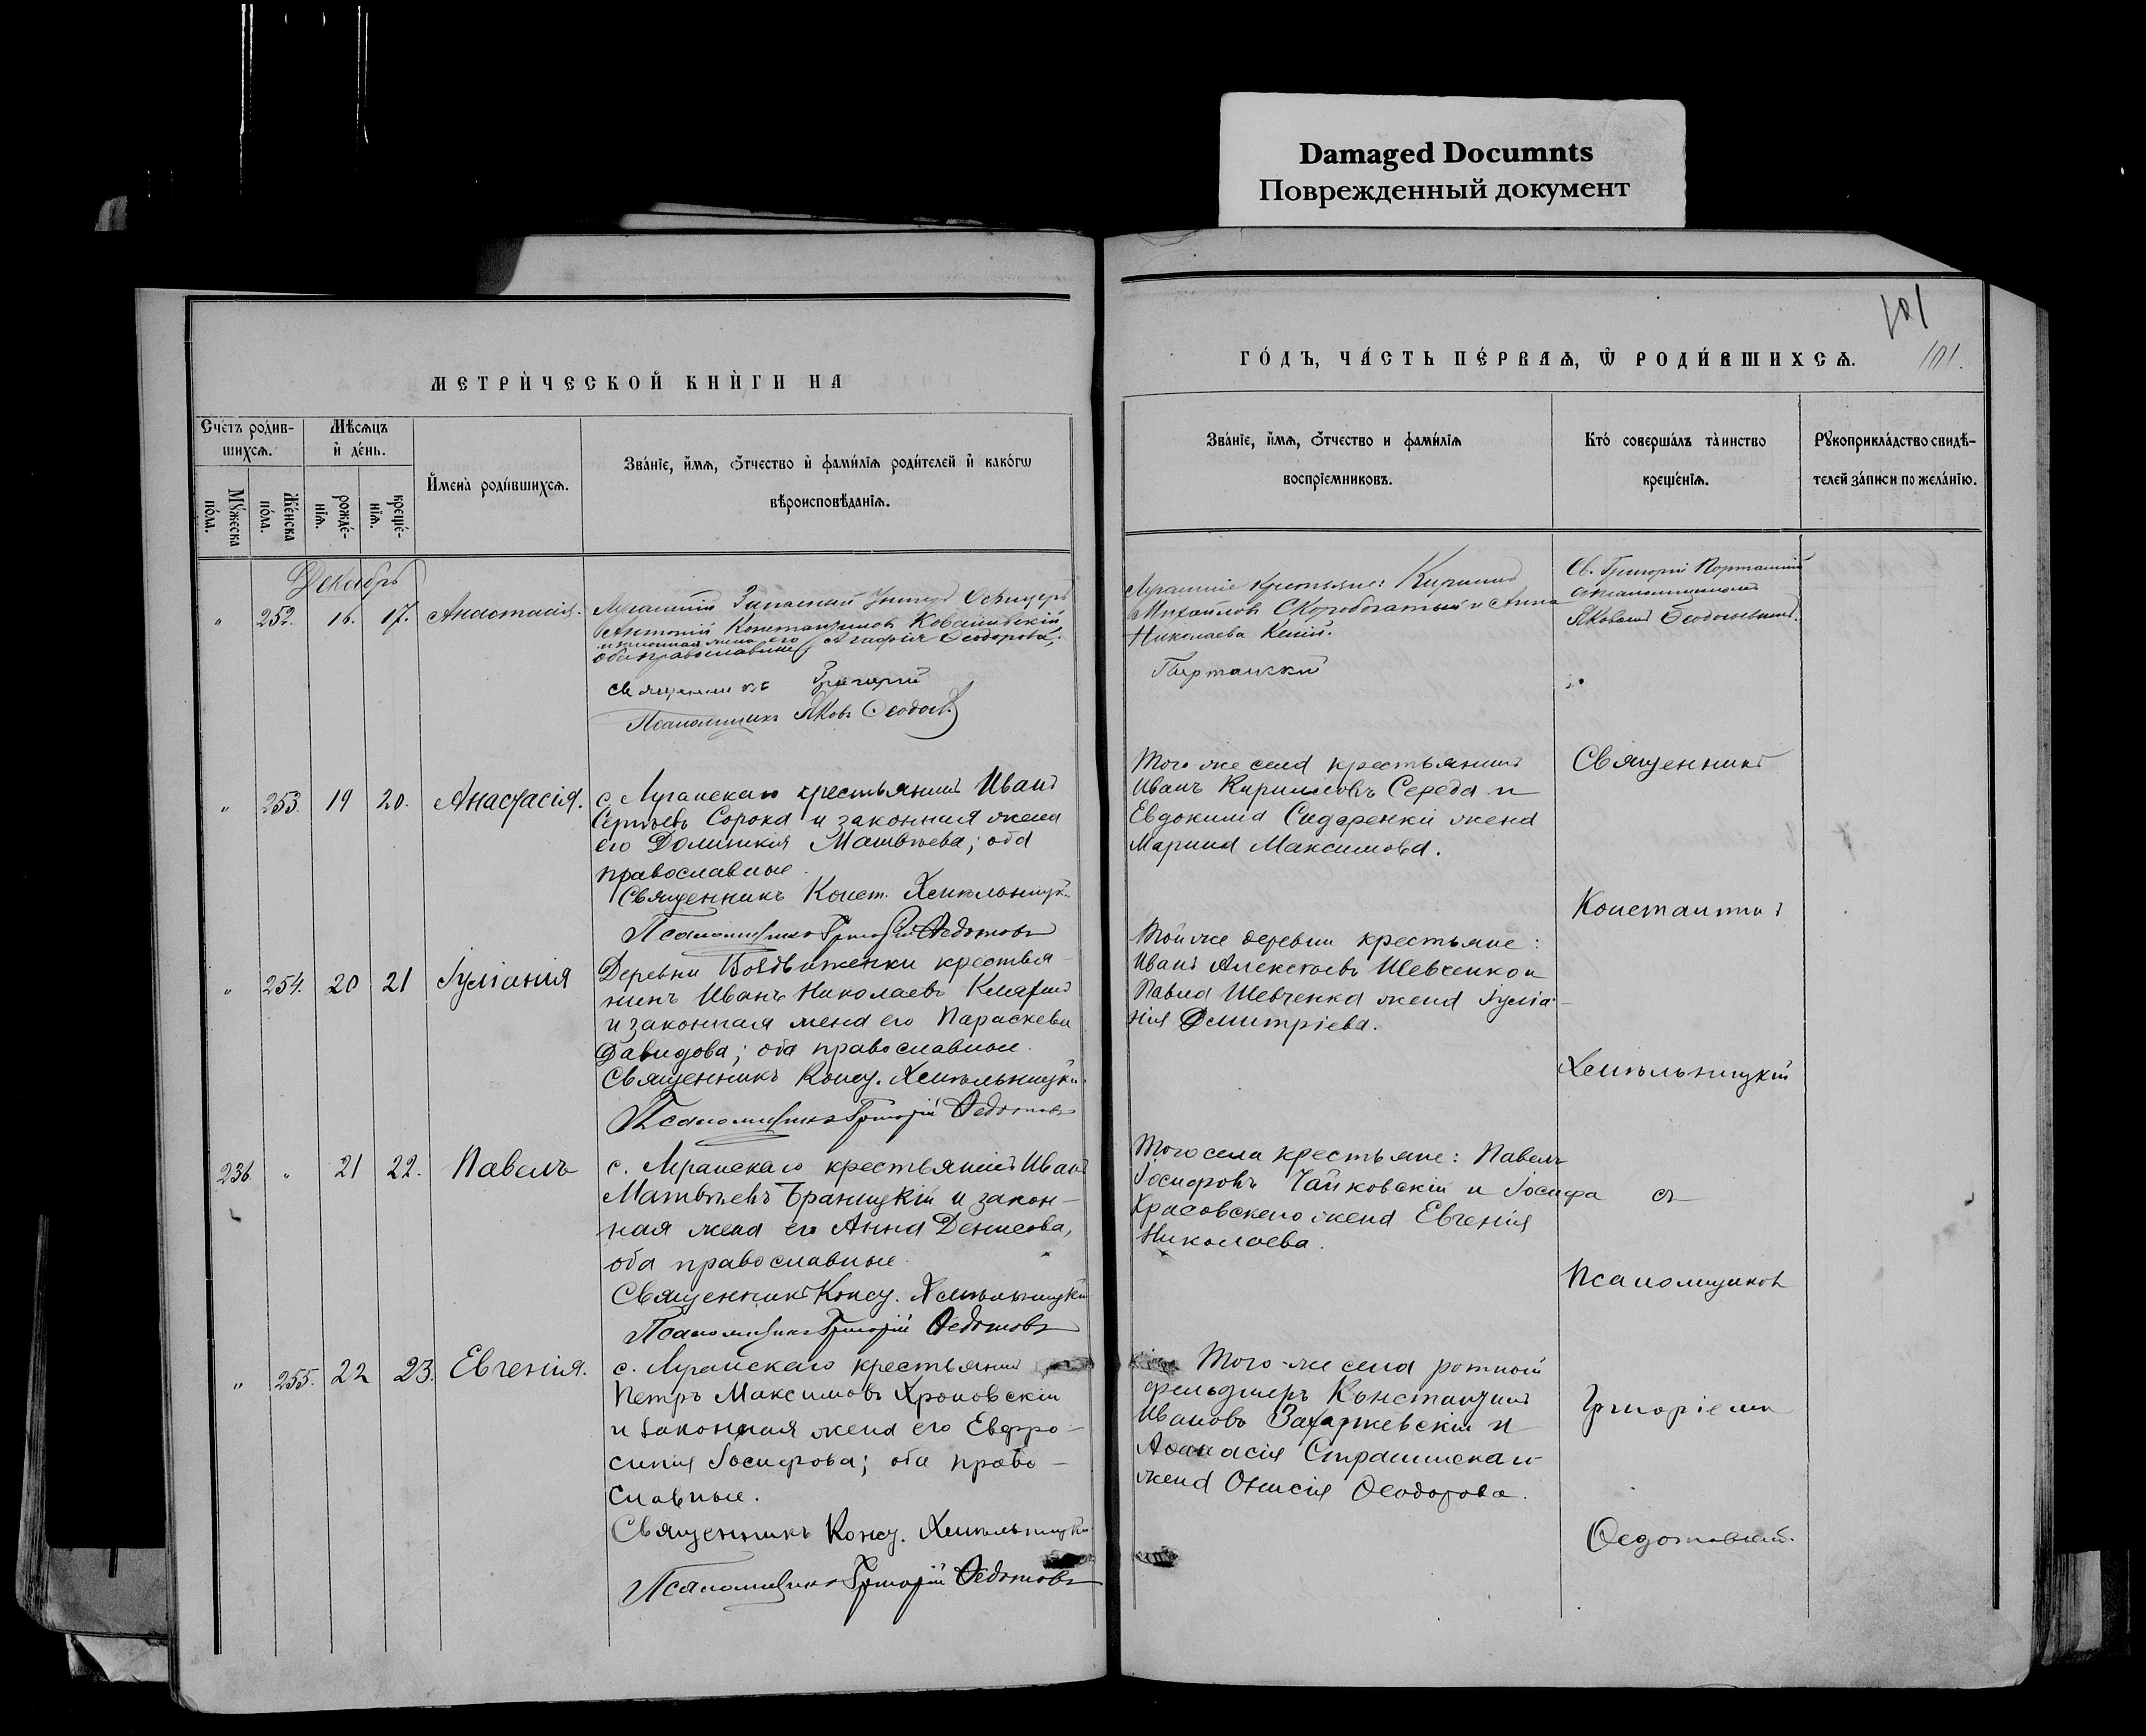 Damaged Documnts
Поврежденный документ
МЕТРИ́ЧЕСКОЙ КНИ́ГИ НА
ГО́ДЪ, ЧА́СТЬ ПЕ́РВАѦ, Ѡ РОДИ́ВШИХСѦ.
101
101.
Счетъ роди́в-
шихсѧ.
Мѣсѧцъ
и де́нь.
Мꙋжеска
по́ла.
Же́нска
по́ла.
рожде́-
нїѧ.
креще́-
нїѧ.
И҆мена̀ роди́вшихсѧ.
Зва́нїе, и҆́мѧ, ѻ҆́тчество и҆ фами́лїѧ роди́телей и҆ како́гѡ
вѣроисповѣ́данїѧ.
Зва́нїе, и҆́мѧ, ѻ҆́тчество и фами́лїѧ
воспрїе́мниковъ.
Кто́ соверша́лъ та̀инство
креще́нїѧ.
Рꙋкоприкла́дство свидѣ́-
телей за́писи по жела́нїю.
Декабрь
" 252. 16. 17. Анастасія.
Антоній Константиновъ
его Агафія Ѳеодорова,
оба православные
Священникъ Григорій
Псаломщикъ Яковъ Ѳеодос.
крестьяне: Кириллъ
Михайловъ Скоробогатый и Анна
Николаева
Св. Григорій
" 253. 19 20. Анастасія.
с. Луганскаго крестьянинъ Иванъ
Сергѣевъ Сорока и законная жена
его Домникія Матвѣева; оба
православные.
Священникъ Конст. Хмѣльницк.
Псаломщикъ Григорій Ѳедотовъ
Того-же села крестьянинъ
Иванъ Кирилловъ Середа и
Евдокима Сидоренки жена
Марина Максимова.
Священникъ
Константинъ
Хмѣльницкій
съ
Псаломщикомъ
Григоріемъ
" 254. 20 21 Іуліанія
Деревни Воздвиженки крестья-
нинъ Иванъ Николаевъ
и законная жена его Параскева
Давидова; оба православные.
Священникъ Конст. Хмѣльницкій
Псаломщикъ Григорій Ѳедотовъ
Той-же деревни крестьяне:
Иванъ Алексѣевъ Шевченко и
Павла Шевченка жена Іуліа-
нія Димитріева.
236. " 21 22. Павелъ
с. Луганскаго крестьянинъ Иванъ
Матвѣевъ Браницкій и закон-
ная жена его Анна Денисова,
оба православные.
Священникъ Конст. Хмѣльницкій
Псаломщикъ Григорій Ѳедотовъ
Того села крестьяне: Павелъ
Іосифовъ Чайковскій и Іосифа
Красовскаго жена Евгенія
Николаева.
" 255. 22 23. Евгенія.
с. Луганскаго крестьянинъ
Петръ Максимовъ Хроновскій
и законная жена его Евфро-
синія Іосифова; оба право-
славные.
Священникъ Конст. Хмѣльницкій
Псаломщикъ Григорій Ѳедотовъ
Того-же села ротный
фельдшеръ Константинъ
Ивановъ Захаржевскій и
Аѳанасія
жена Онисія Ѳеодорова.